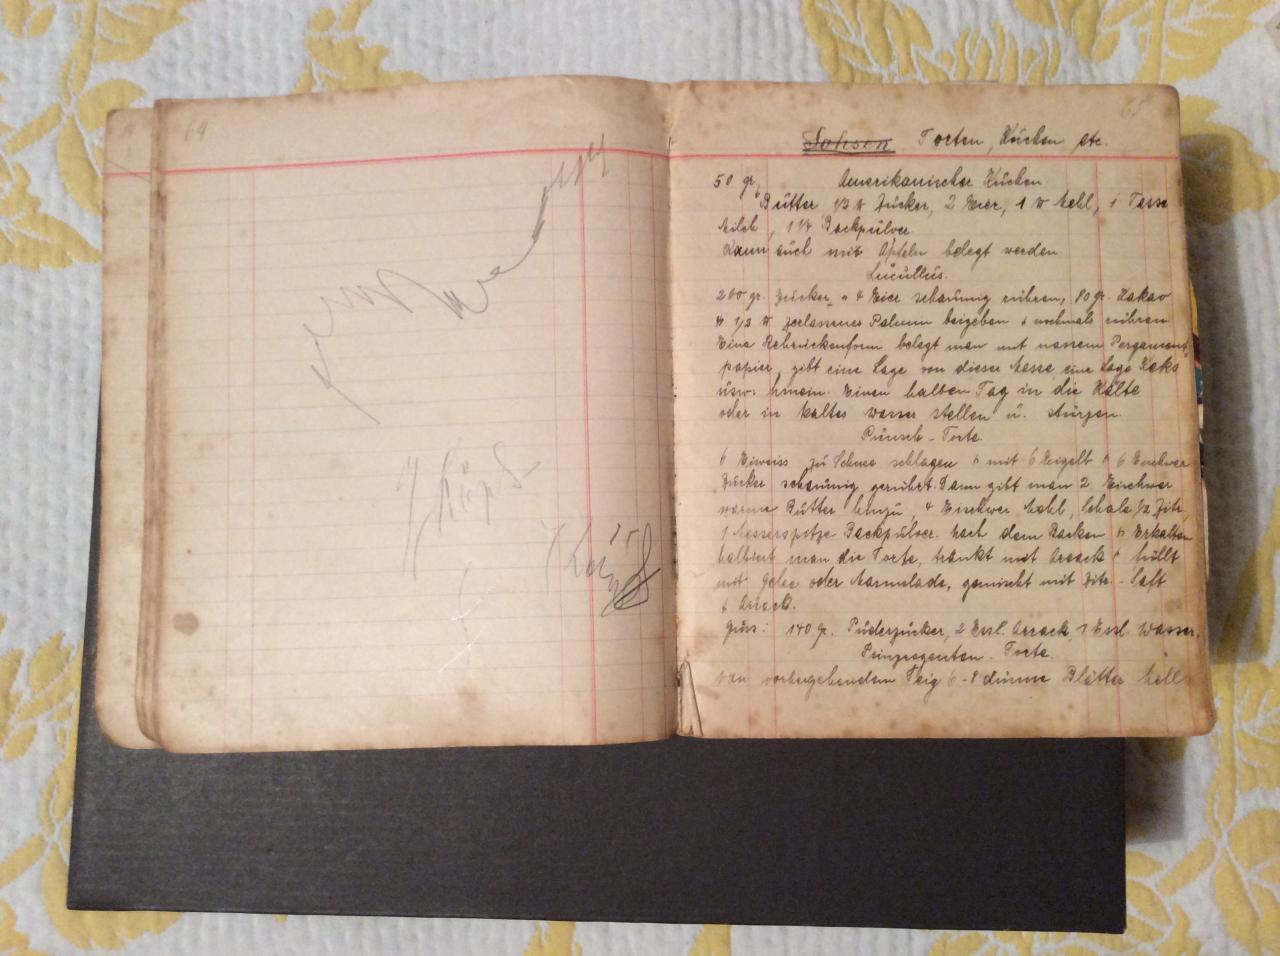 64
65
Torten, Kuchen, etc.
50 gr,
Amerikanischer Kuchen.
Butter 1/2 ℔ Zucker, 2 Eier, 1 ℔ Mehl, 1 Tasse
Milch, Backpulver
Kann auch mit Äpfeln belegt werden
Lucullus.
200 gr. Zucker, 4 Eier schaumig rühren, 80 gr. Kakao
1/2 ℔ zerlassenes Palmin beigeben & nochmals rühren
Eine Rehrückenform belegt man mit nassem Pergament
papier, gibt eine Lage von dieser Masse eine Lage Keks
usw. hinein. Einen halben Tag in die Kälte
oder in kaltes Wasser stellen u. stürzen.
Punsch - Torte.
6 Eiweiss zu Schnee schlagen mit 6 Eigelb 6 Eischwer
Zucker schaumig gerührt. Dann gibt man 2 Eischwer
warme Butter hinzu, 4 Eischwer Mehl, Schale 1/2 Zitr.
1 Messerspitze Backpulver. Nach dem Backen & Erkalten
halbiert man die Torte, tränkt mit Arrack & füllt
mit Gelee oder Marmelade, gemischt mit Zitr. - Saft
& Arrack.
Guss: 140 gr. Puderzucker, 2 Essl. Arrack, 1 Essl. Wasser.
Prinzregenten - Torte.
von vorhergehendem Teig 6 - 8 dünne Blätter hell